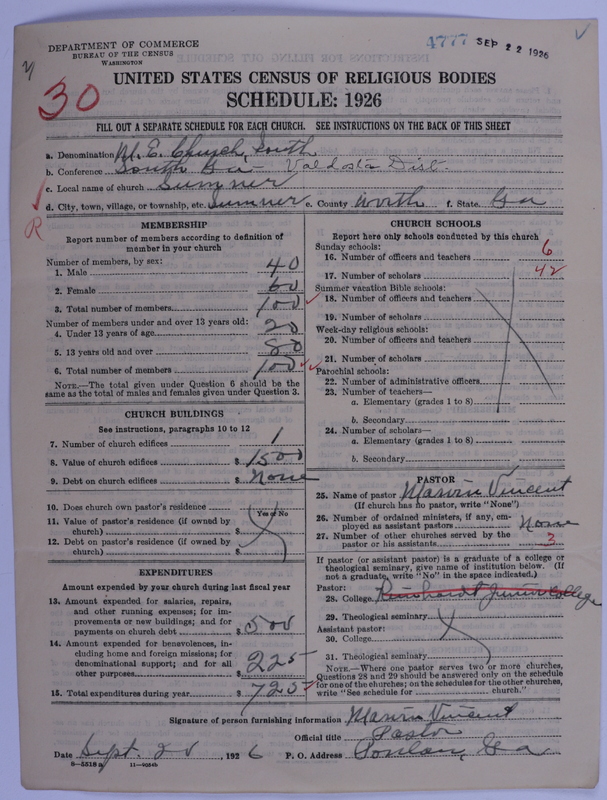 DEPARTMENT OF COMMERCE
BUREAU OF THE CENSUS
WASHINGTON
4777 SEP 22 1926
30
UNITED STATES CENSUS OF RELIGIOUS BODIES
SCHEDULE: 1926
FILL OUT A SEPARATE SCHEDULE FOR EACH CHURCH. SEE INSTRUCTIONS ON THE BACK OF THIS SHEET
a. Denomination M. E. Church, South
b. Conference South Ga - Valdosta Dist.
c. Local name of church Sumner
d. City, town, village, or township, etc. Sumner e. County Worth f. State Ga
R
MEMBERSHIP
Report number of members according to definition of
member in your church
Number of members, by sex:
1. Male 40
2. Female 60
3. Total number of members 100
Number of members under and over 13 years old:
4. Under 13 years of age 20
5. 13 years old and over 80
6. Total number of members 100
NOTE.—The total given under Question 6 should be the
same as the total of males and females given under Question 3.
CHURCH BUILDINGS
See instructions, paragraphs 10 to 12
7. Number of church edifices 1
8. Value of church edifices $ 1500
9. Debt on church edifices $ None
10. Does church own pastor's residence
Yes or No
11. Value of pastor's residence (if owned by
church) $
12. Debt on pastor's residence (if owned by
church) $
EXPENDITURES
Amount expended by your church during last fiscal year
13. Amount expended for salaries, repairs,
and other running expenses; for im-
provements or new buildings; and for
payments on church debt $ 500
14. Amount expended for benevolences, in-
cluding home and foreign missions; for
denominational support; and for all
other purposes $ 225
15. Total expenditures during year $ 725
CHURCH SCHOOLS
Report here only schools conducted by this church
Sunday schools:
16. Number of officers and teachers 6
17. Number of scholars 42
Summer vacation Bible schools:
18. Number of officers and teachers
19. Number of scholars
Week-day religious schools:
20. Number of officers and teachers
21. Number of scholars
Parochial schools:
22. Number of administrative officers
23. Number of teachers—
a. Elementary (grades 1 to 8)
b. Secondary
24. Number of scholars—
a. Elementary (grades 1 to 8)
b. Secondary
PASTOR
25. Name of pastor Marvin Vincent
(If church has no pastor, write "None")
26. Number of ordained ministers, if any, em-
ployed as assistant pastors None
27. Number of other churches served by the
pastor or his assistants 3
If pastor (or assistant pastor) is a graduate of a college or
theological seminary, give name of institution below. (If
not a graduate, write "No" in the space indicated.)
Pastor:
28. College Reinhardt Junior College
29. Theological seminary
Assistant pastor:
30. College
31. Theological seminary
NOTE.—Where one pastor serves two or more churches,
Questions 28 and 29 should be answered only on the schedule
for one of the churches; on the schedules for the other churches,
write "See schedule for church."
Signature of person furnishing information Marvin Vincent
Official title Pastor
Date Sept. 20, 1926 P. O. Address Poulan, Ga
8—5518a 11—9034b